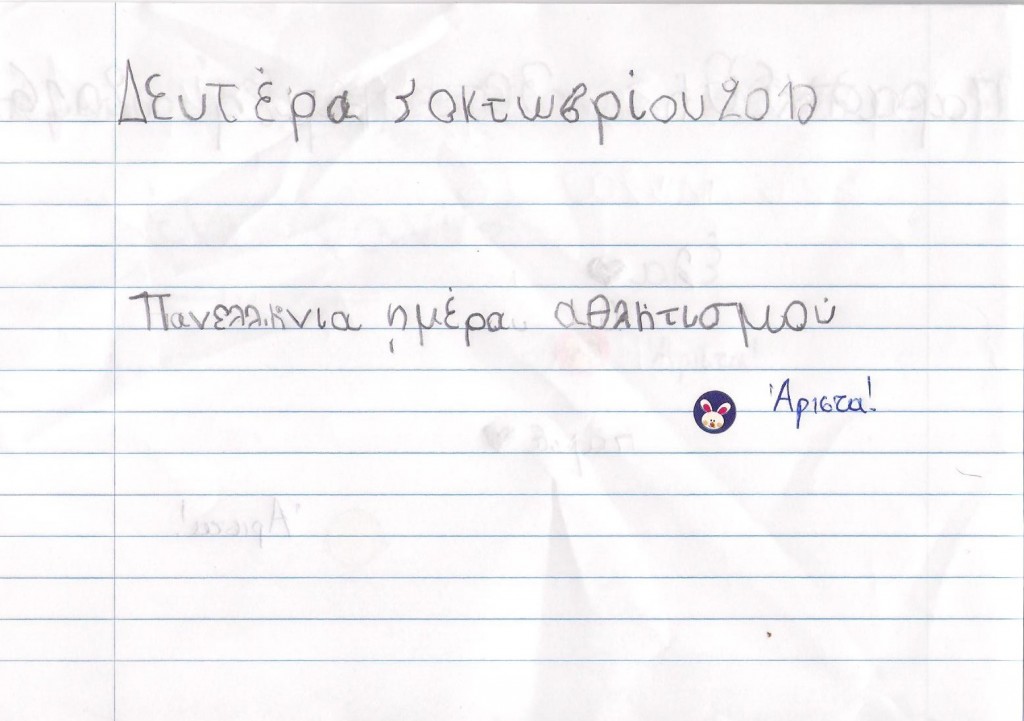 Δευτέρα 3 οκτωβρίου
Πανελλήνια ημέρα αθλητισμού
Άριστα!